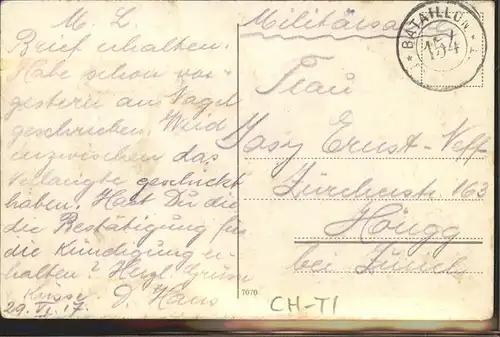 M. L.
Brief erhalten.
Habe schon vor-
gestern an Vogel
geschrieben. Wird
inzwischen das
Verlangte geschickt
haben. Hast Du die
die Bestätigung für
die Kündigung er-
halten? Herzl. Grüsse
D. Hans
29. VI. 17.
Militärsa
BATAILLON
154
Frau
Ernst-Neff
Zürcherstr. 163
Höngg
bei Zürich
7070
CH-TI